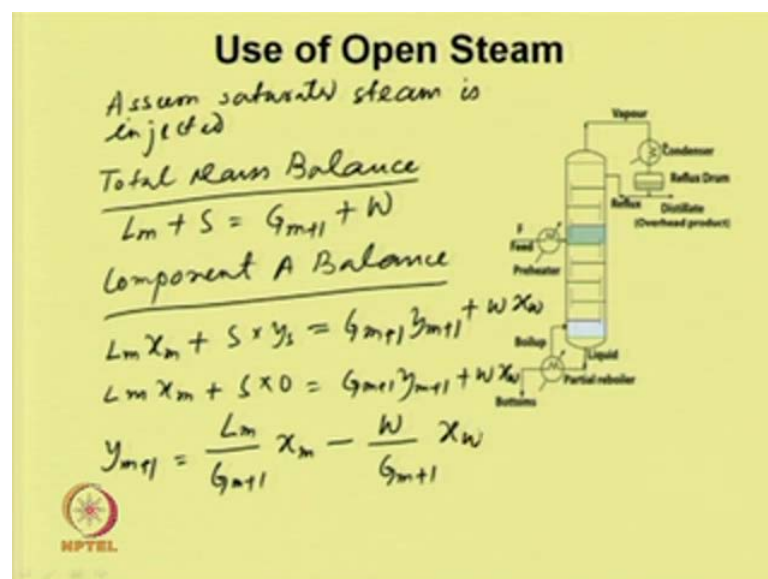 Use of Open Steam
Assum saturated steam is
injected
Total Mass Balance
Lm + S = Gm+1 + W
Component A Balance
Lm xm + S × ys = Gm+1 ym+1 + W xw
Lm xm + S × 0 = Gm+1 ym+1 + W xw
ym+1 = Lm/Gm+1 xm − W/Gm+1 xw
Vapour
Condenser
Reflux Drum
Reflux
Distillate
(Overhead product)
F
Feed
Preheater
Boilup
Liquid
Partial reboiler
Bottoms
NPTEL